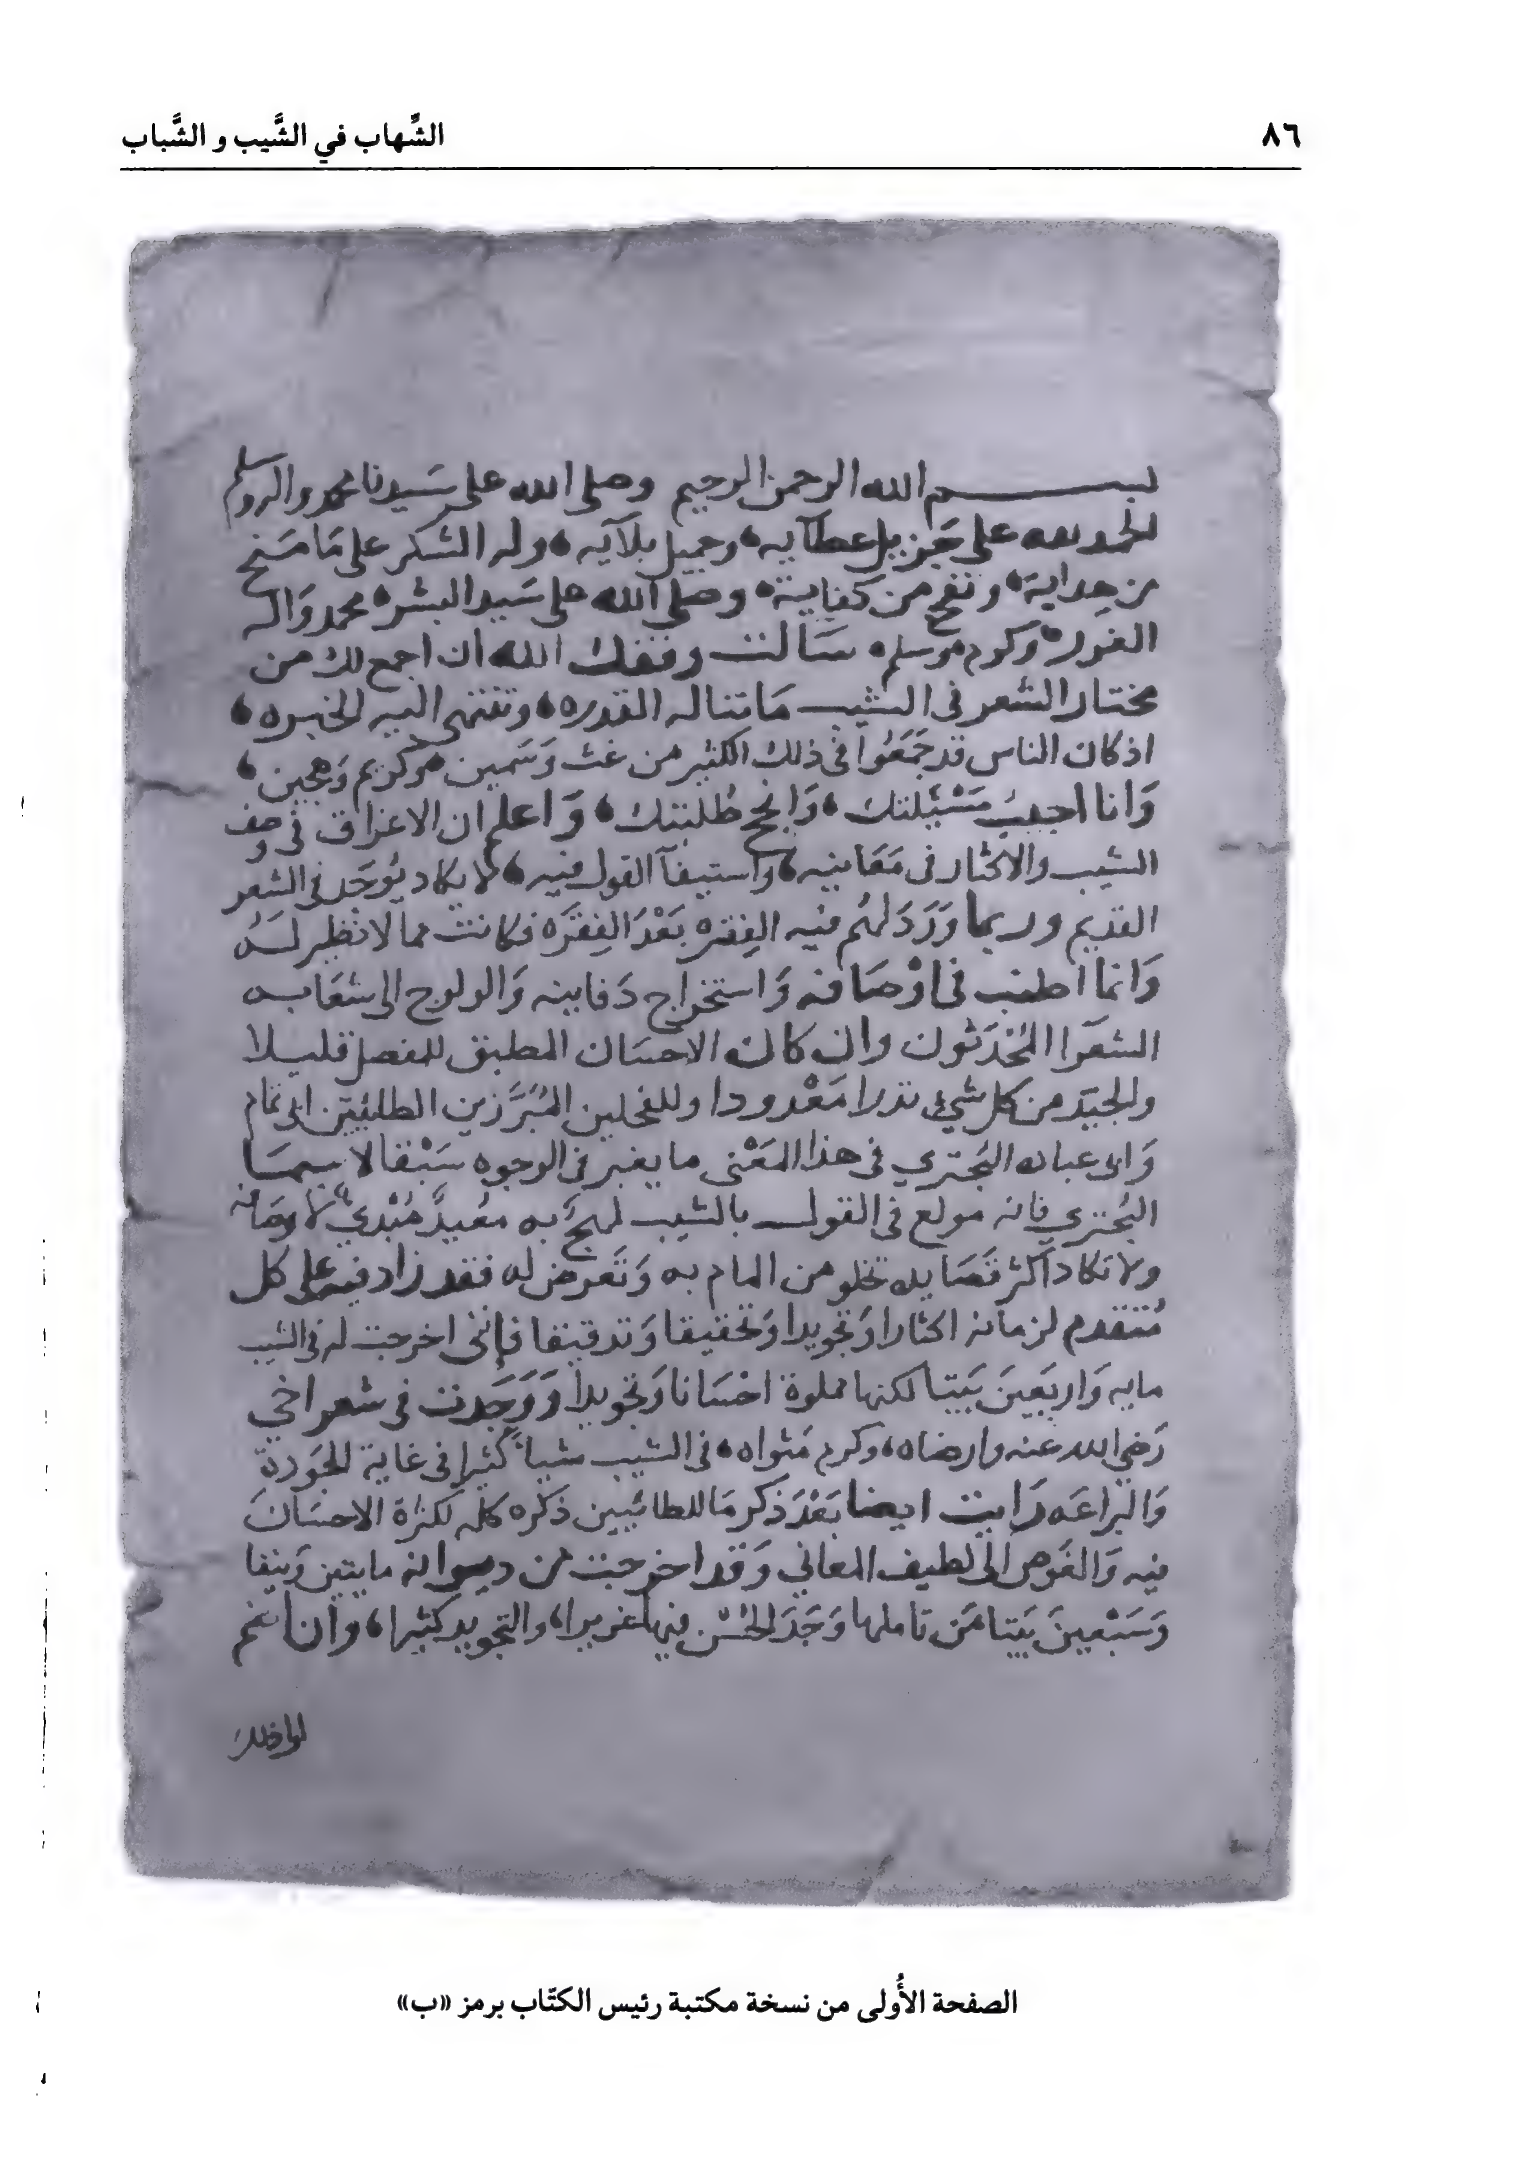 ٨٦
الشِّهاب في الشَّيب و الشَّباب
بسم الله الرحمن الرحيم وصلى الله على سَيدنا محمد واله وسلم
الحمد لله على جَزيل عطآيه، وجميل بلآيه، وله الشكر على مَا مَنح
من هِداية، ونفح من كفاية، وصلى الله على سَيد البشر، محمد وَاله
الغرر، وكرم وسلم، سَالت وفقك الله ان اجمع لك من
مختار الشعر في الشيب مَا تناله القدره، وتنتهى اليه الخبره،
اذ كان الناس قد جَمَعُوا في ذلك الكثير من غث وَسَمين، وكريم وَهجين،
وَانا اجيبُ مَسْئَلتك، وَانجح طُلبتك، وَاعلم ان الاغراق في وصف
الشيب والاكثار في مَعَانيه، واستيفآ القول فيه، لا يكاد يُوجَد في الشعر
القديم وربما وَرَدَ لهُم فيه الفِقره بَعْدَ الفِقرَه فكانت مما لا نظِير لهُ
وَانما اطنب في اوْصَافه وَاستخراج دَفاينه وَالولوج الى شعَابه
الشعَرا المُحْدَثون وان كان الاحسَان المطبق للمفصل قليلا
والجيّد من كل شيء نزرا مَعْدودا وللفحلين المُبَرَّزين الطائيين ابى تمام
وَابى عباده البُحتري في هذا المَعْنى ما يغبر في الوجوه سَبْقا لا سيمَا
البُحتري فانه مولع في القول بالشيب لهجٌ به معُيدٌ مُبْدئ لاوصَافه
ولا تكاد اكثر قصَايده تخلو من المام به وَتَعرض له فقد زاد فيه على كل
مُتقدم لزمانه اكثارا وَتجويدا وَتحقيقا وَتدقيقا فإننى اخرجت له في الشيب
مايه وَاربَعينَ بَيتا لكنها مملوة احْسَانا وَتجويدا وَوَجَدت في شعر اخي
رَضي الله عنه وارضاه، وكرم مَثواه، في الشيب شيأ كثيرا في غاية الجَودة
وَالبراعَه رَايت ايضا بَعْدَ ذكر مَا للطائيين ذكره كله لكثرة الاحسَان
فيه وَالغَوص الى لطيف المعاني وَقد اخرجت من ديوانه مايتين وَنيفا
وَسَبْعينَ بَيتا مَن تاملها وَجَدَ الحُسْن فيها غزيرا، والتجويد كثيرا، وان اضم
الى ذلك
الصفحة الأُولى من نسخة مكتبة رئيس الكتّاب برمز «ب»